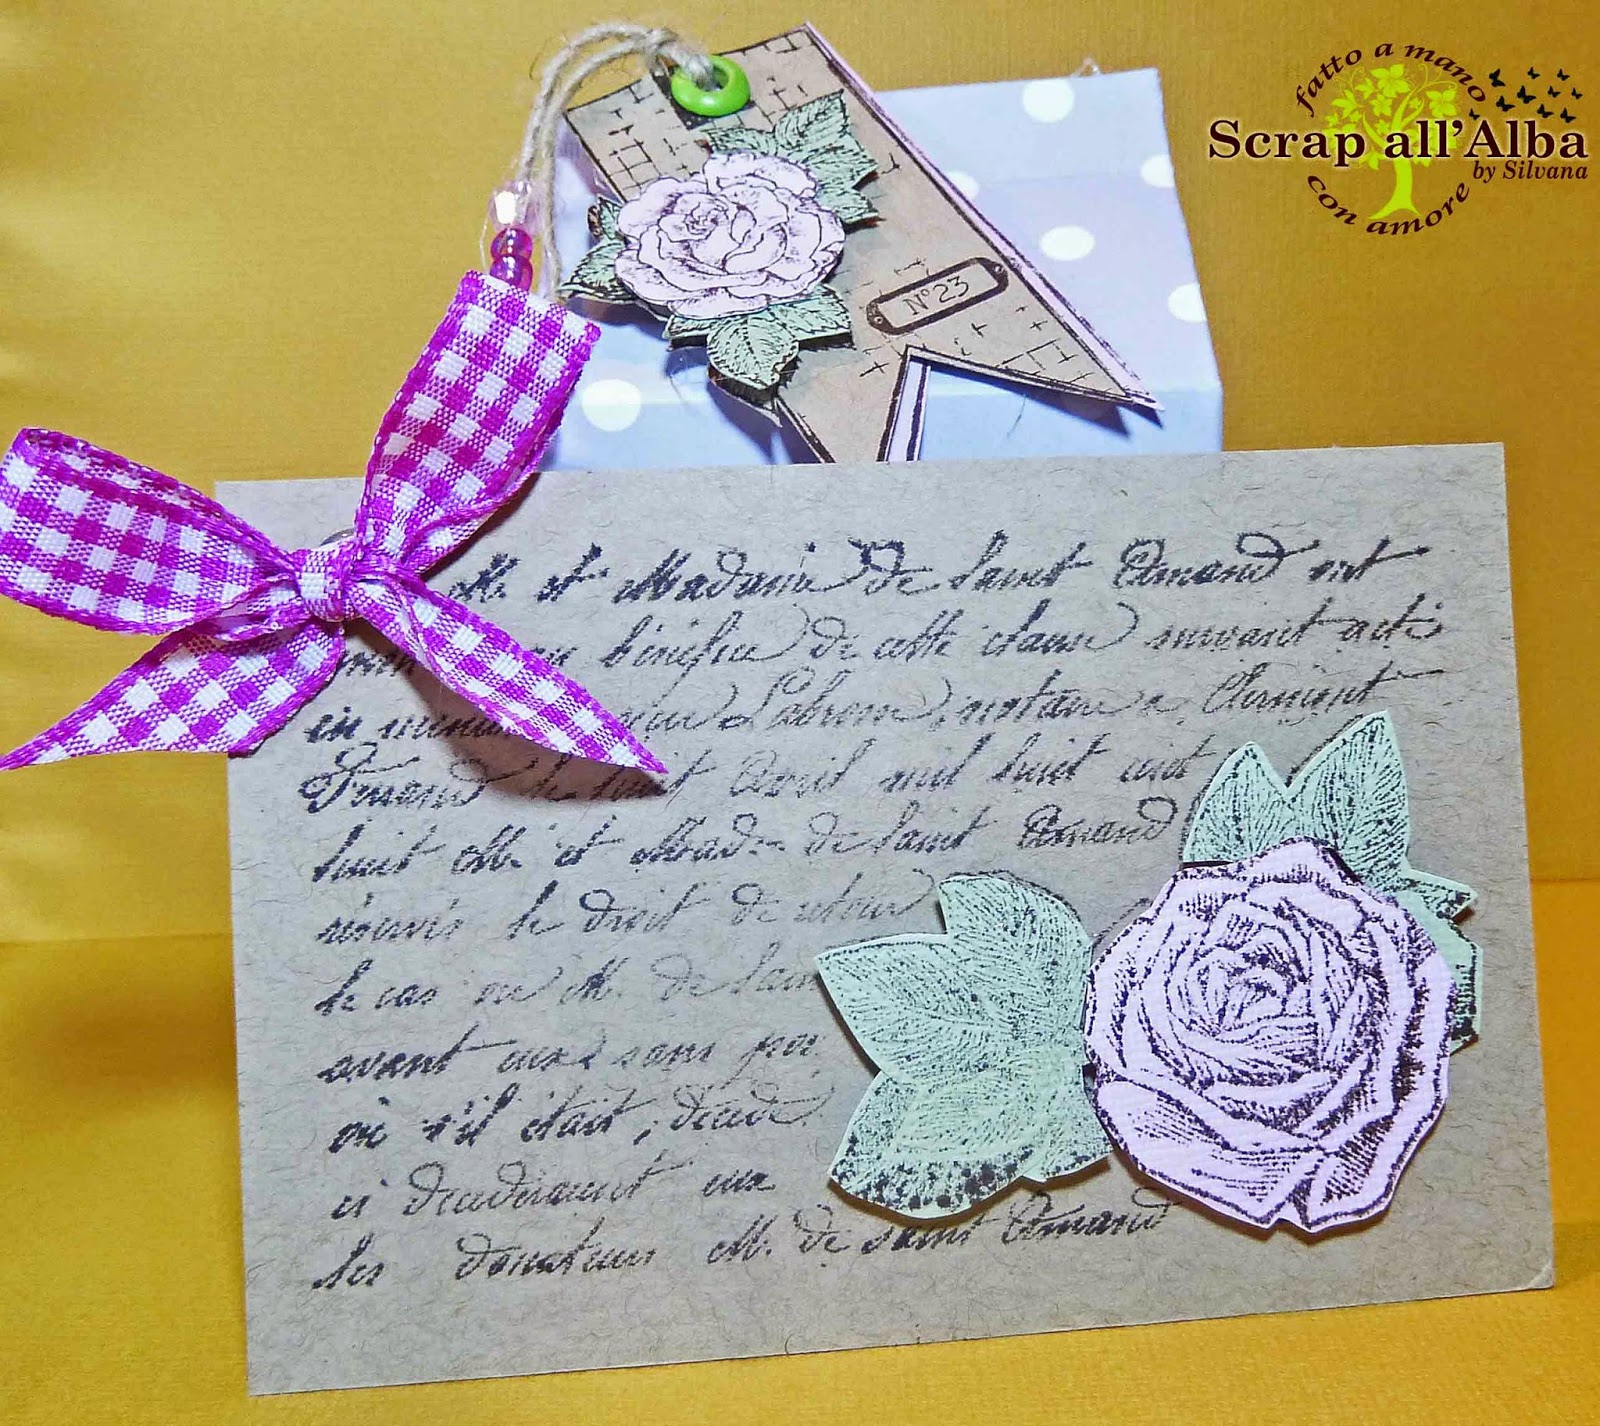 fatto a mano
Scrap all'Alba
by Silvana
con amore
N° 23
M. et Madame de Saint Amand ont
bénéfice de cette clause suivant acte
en notaire a Clermont
Ferrand le huit Avril mil huit cent
huit M. et Mad. de Saint Amand
réservés le droit de retour
le cas où M. de Sain
avant eux sans pos
où s'il était, décéd
ci décéderaient eux
les donateurs M. de Saint Amand